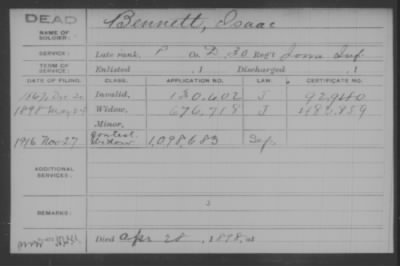 DEAD
NAME OF SOLDIER:
Bennett, Isaac
SERVICE:
Late rank, P Co. D, 30 Reg't Iowa Inf
TERM OF SERVICE:
Enlisted , 1 Discharged , 1
DATE OF FILING. CLASS. APPLICATION NO. LAW. CERTIFICATE NO.
1867, Dec Invalid, 130,602 J 92,980
1898 May Widow, 676,718 J 483,859
Minor,
1916 Nov 27 Contest. Widow 1,098,683
ADDITIONAL SERVICES:
REMARKS:
Died Apr 28, 1898, at